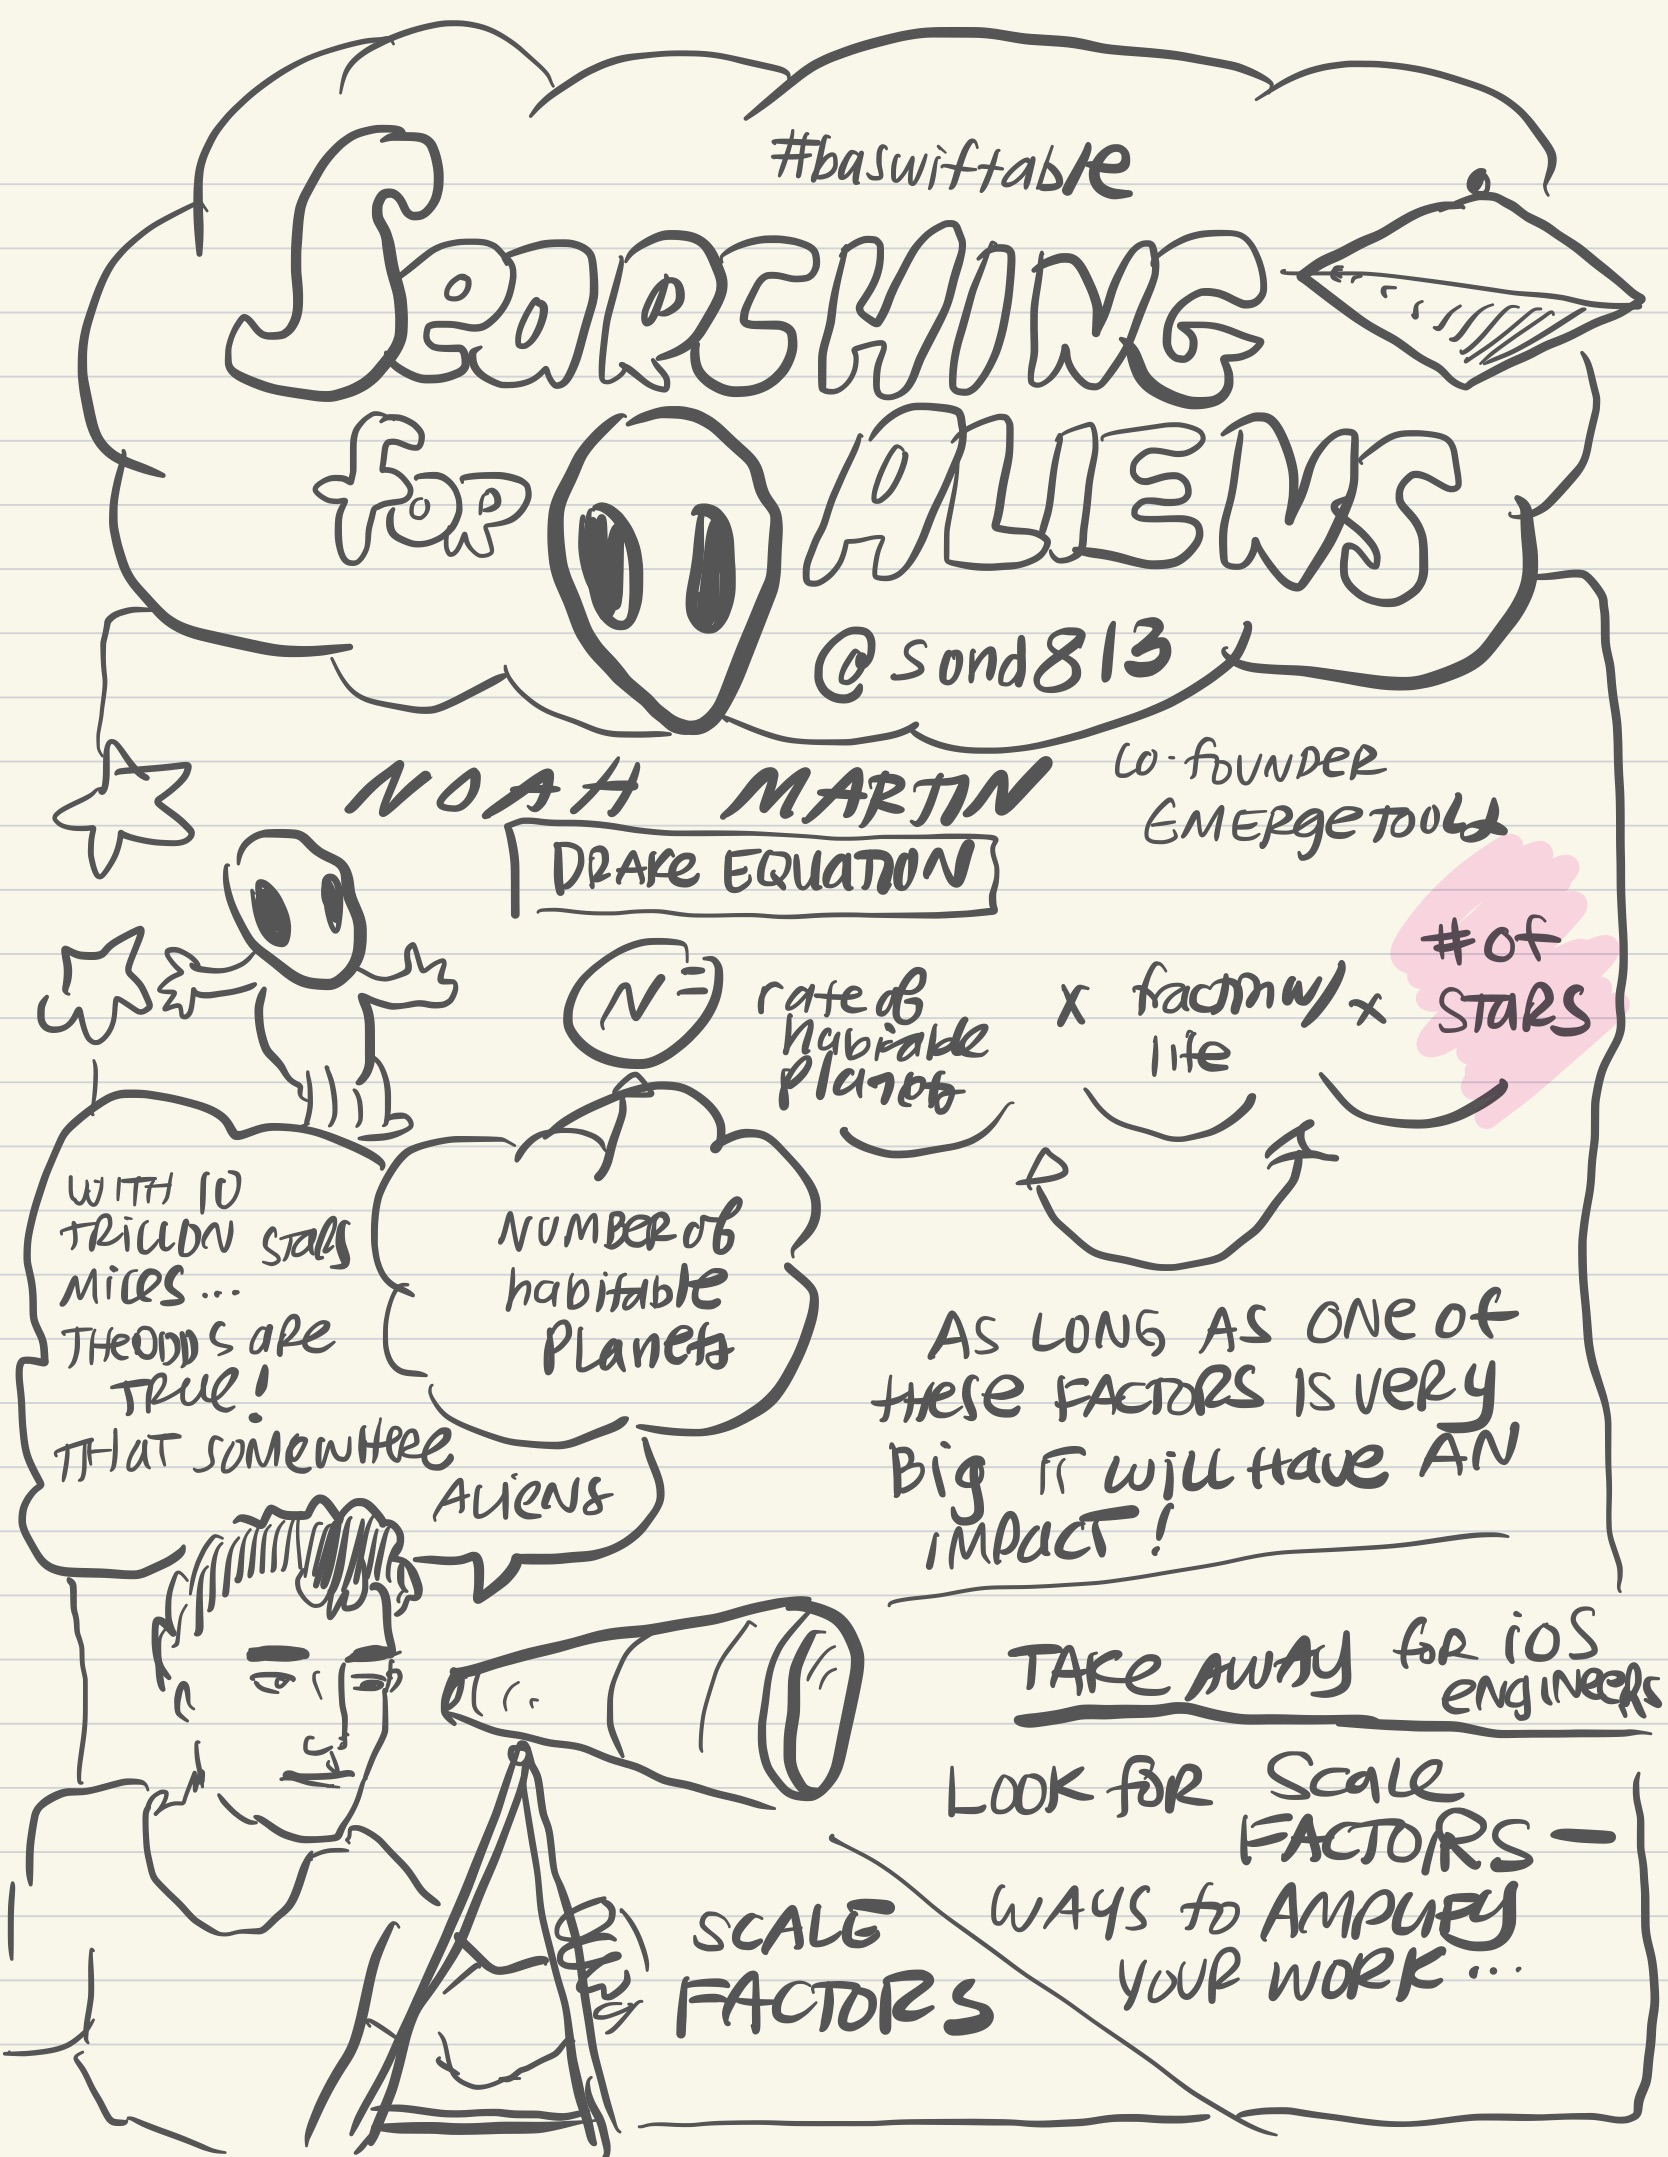 #baswiftable
SEARCHING
for ALIENS
@sond813
NOAH MARTIN
co-founder
EMERGETOOLD
DRAKE EQUATION
N =
rate of
habitable
planets
x
fraction w/
life
x
# of
STARS
NUMBER of
habitable
PLanets
WITH 10
TRILLION STARS
MILES...
THE ODDS ARE
TRUE!
THAT SOMEWHERE
ALIENS
AS LONG AS ONE of
these FACTORS IS VERY
Big IT will Have AN
IMPACT!
TAKE AWAY for iOS
engineers
LOOK for Scale
FACTORS -
WAYS to AMPLIFY
YOUR WORK...
SCALE
FACTORS